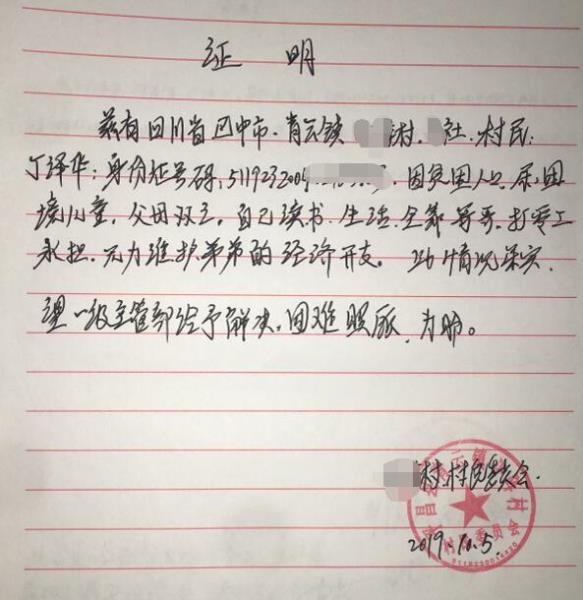 证 明
兹有四川省巴中市.肖云镇 村. 社.村民:
丁泽华:身份证号码,511923200 .因贫困人口.系困
境儿童,父母双亡,自己读书.生活.全靠哥哥.打零工
承担.无力维护弟弟的经济开支。 情况属实,
望 级主管部给予解决,困难照顾,为盼。
村.村民委会.
2019.10.5.